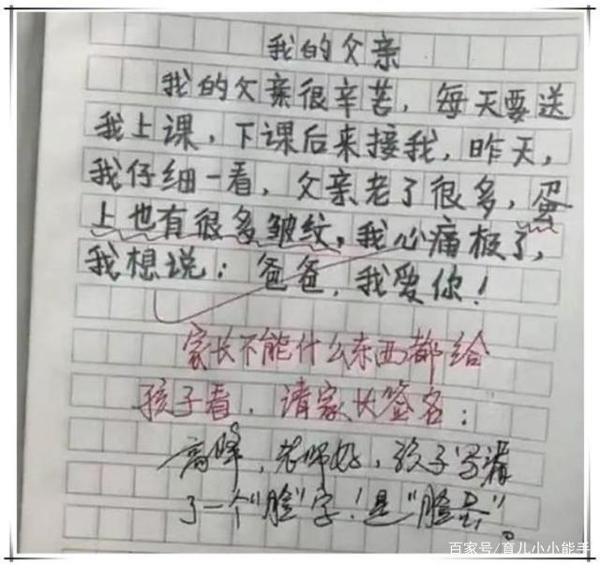 我的父亲
我的父亲很辛苦，每天要送
我上课，下课后来接我，昨天，
我仔细一看，父亲老了很多，蛋
上也有很多皱纹，我心痛极了，
我想说：爸爸，我爱你！
家长不能什么东西都给
孩子看，请家长签名：
高峰，老师好，孩子写漏
了一个“脸”字！是“脸蛋”。
百家号/育儿小小能手